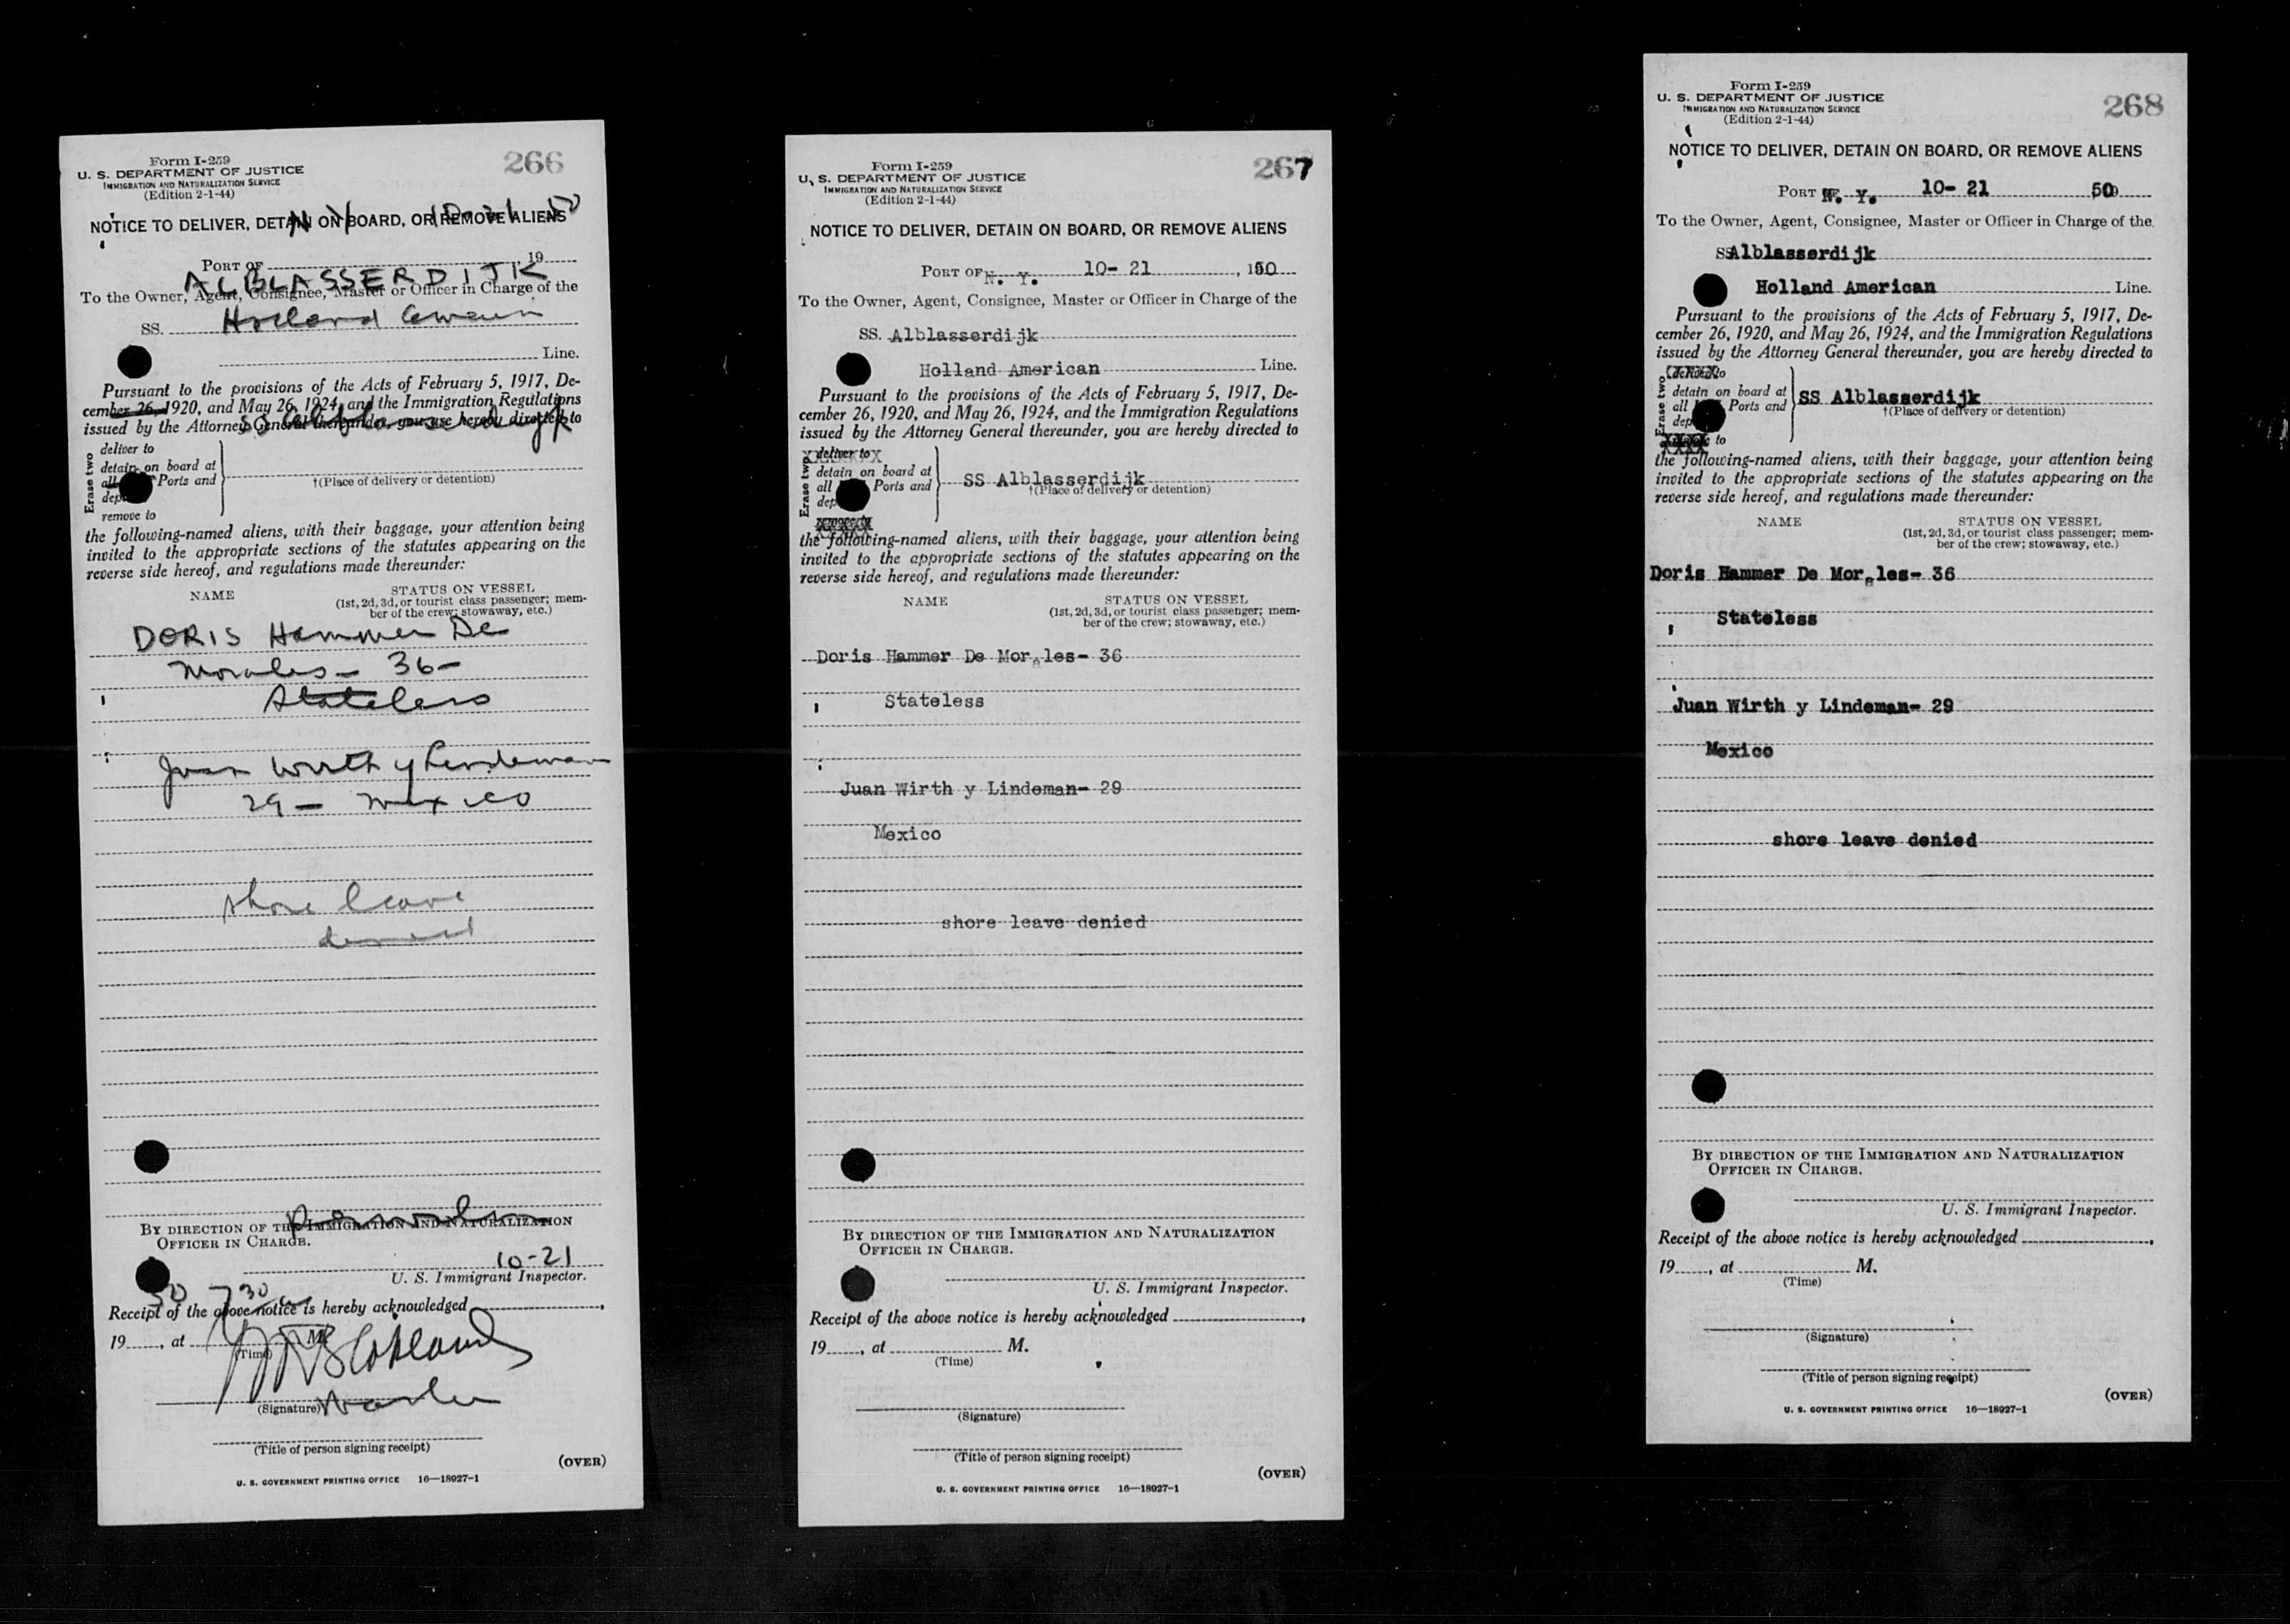 Form I-259
U. S. DEPARTMENT OF JUSTICE
IMMIGRATION AND NATURALIZATION SERVICE
(Edition 2-1-44)
266
NOTICE TO DELIVER, DETAIN ON BOARD, OR REMOVE ALIENS
N Y 10-21 50
PORT OF , 19
ALBLASSERDIJK
To the Owner, Agent, Consignee, Master or Officer in Charge of the
SS. Holland
Line.
Pursuant to the provisions of the Acts of February 5, 1917, De-
cember 26, 1920, and May 26, 1924, and the Immigration Regulations
issued by the Attorney General thereunder, you are hereby directed to
Erase two
deliver to
detain on board at
all Ports and
dep
remove to
†(Place of delivery or detention)
the following-named aliens, with their baggage, your attention being
invited to the appropriate sections of the statutes appearing on the
reverse side hereof, and regulations made thereunder:
NAME STATUS ON VESSEL
(1st, 2d, 3d, or tourist class passenger; mem-
ber of the crew; stowaway, etc.)
DORIS Hammer De
Morales - 36 -
Stateless
Juan Wirth y Lindeman
29 - Mexico
shore leave
denied
BY DIRECTION OF THE IMMIGRATION AND NATURALIZATION
OFFICER IN CHARGE.
10-21
U. S. Immigrant Inspector.
50 730 a
Receipt of the above notice is hereby acknowledged ,
19 , at M.
(Time)
(Signature) Master
(Title of person signing receipt)
(OVER)
U. S. GOVERNMENT PRINTING OFFICE 16—18027-1
Form I-259
U. S. DEPARTMENT OF JUSTICE
IMMIGRATION AND NATURALIZATION SERVICE
(Edition 2-1-44)
267
NOTICE TO DELIVER, DETAIN ON BOARD, OR REMOVE ALIENS
PORT OF N. Y. 10- 21 , 1950
To the Owner, Agent, Consignee, Master or Officer in Charge of the
SS. Alblasserdijk
Holland American Line.
Pursuant to the provisions of the Acts of February 5, 1917, De-
cember 26, 1920, and May 26, 1924, and the Immigration Regulations
issued by the Attorney General thereunder, you are hereby directed to
Erase two
deliver to
detain on board at
all Ports and
dep
remove to
SS Alblasserdijk
†(Place of delivery or detention)
the following-named aliens, with their baggage, your attention being
invited to the appropriate sections of the statutes appearing on the
reverse side hereof, and regulations made thereunder:
NAME STATUS ON VESSEL
(1st, 2d, 3d, or tourist class passenger; mem-
ber of the crew; stowaway, etc.)
Doris Hammer De Morales- 36
Stateless
Juan Wirth y Lindeman- 29
Mexico
shore leave denied
BY DIRECTION OF THE IMMIGRATION AND NATURALIZATION
OFFICER IN CHARGE.
U. S. Immigrant Inspector.
Receipt of the above notice is hereby acknowledged ,
19 , at M.
(Time)
(Signature)
(Title of person signing receipt)
(OVER)
U. S. GOVERNMENT PRINTING OFFICE 16—18027-1
Form I-259
U. S. DEPARTMENT OF JUSTICE
IMMIGRATION AND NATURALIZATION SERVICE
(Edition 2-1-44)
268
NOTICE TO DELIVER, DETAIN ON BOARD, OR REMOVE ALIENS
PORT N. Y. 10- 21 50
To the Owner, Agent, Consignee, Master or Officer in Charge of the
SS Alblasserdijk
Holland American Line.
Pursuant to the provisions of the Acts of February 5, 1917, De-
cember 26, 1920, and May 26, 1924, and the Immigration Regulations
issued by the Attorney General thereunder, you are hereby directed to
Erase two
deliver to
detain on board at
all Ports and
dep
to
SS Alblasserdijk
†(Place of delivery or detention)
the following-named aliens, with their baggage, your attention being
invited to the appropriate sections of the statutes appearing on the
reverse side hereof, and regulations made thereunder:
NAME STATUS ON VESSEL
(1st, 2d, 3d, or tourist class passenger; mem-
ber of the crew; stowaway, etc.)
Doris Hammer De Morales- 36
Stateless
Juan Wirth y Lindeman- 29
Mexico
shore leave denied
BY DIRECTION OF THE IMMIGRATION AND NATURALIZATION
OFFICER IN CHARGE.
U. S. Immigrant Inspector.
Receipt of the above notice is hereby acknowledged ,
19 , at M.
(Time)
(Signature)
(Title of person signing receipt)
(OVER)
U. S. GOVERNMENT PRINTING OFFICE 16—18027-1